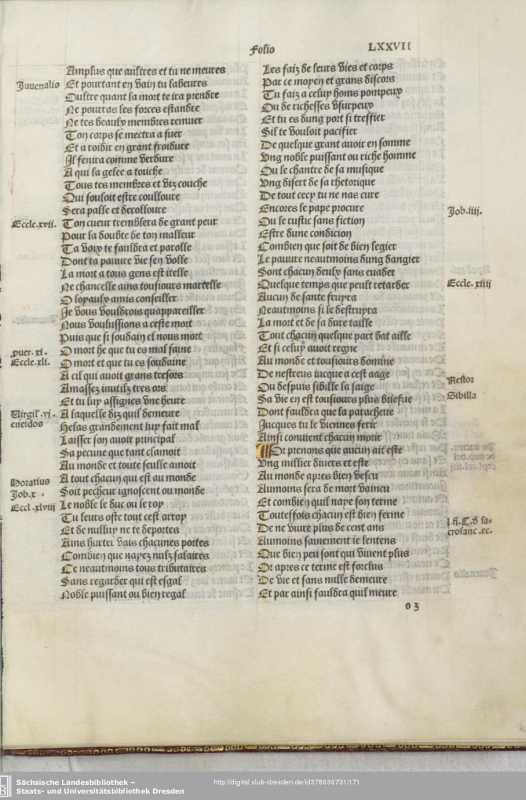 Folio LXXVII
Amplus que aultres et tu ne meures
Juuenalis
Et pourtant en vain tu labeures
Oultre quant la mort te ira prendre
Ne pourras les forces estandre
Ne tes beaulx membres remuer
Ton corps se mectra a suer
Et a roidir en grant froidure
Il sentira comme verdure
A qui la gelee a touche
Tous tes membres et viz couche
Qui souloit estre coulloure
Sera palle et decolloure
Eccle.xvii.
Ton cueur tremblera de grant peur
Pour la doubte de ton malleur
Ta voix te fauldra et parolle
Dont ta pauure vie sen volle
La mort a tous gens est itelle
Ne chancelle ains tousiours martelle
O loyaulx amis conseiller
Je vous vouldrois quappareiller
Nous voulussions a ceste mort
Puis que si soudain el nous mort
puer. xi.
O mort he que tu es mal saine
Eccle.xli.
O mort et que tu es soudaine
A cil qui auoit grans tresors
Amassez inutilz tres ors
Et tu luy assignes vne heure
Virgil'.vj.
eneidos
A laquelle diz quil demeure
Helas grandement luy fait mal
Laisser son auoir principal
Sa pecune que tant clamoit
Au monde et toute seulle amoit
Horatius
A tout chacun qui est au monde
Job.x.
Soit pecheur ignoscent ou monde
Eccl.xlviij
Le noble le duc ou le roy
Tu leurs oste tout cest arroy
Et de nulluy ne te deportes
Ains hurter vais chacunes portes
Combien que nayez nulz salaires
Ce neautmoins tous tributaires
Sans regarder qui est esgal
Noble puissant ou bien regal
Les faiz de leurs vies et corps
Par ce moyen et grans discors
Tu faiz a celuy homs pompeux
Ou de richesses vsurpeux
Et tu es dung port si tressier
Sil te vouloit pacifier
De quelque grant auoir en somme
Vng noble puissant ou riche homme
Ou le chantre de sa musique
Vng disert de sa rhetorique
De tout cecy tu ne nas cure
Encores le pape procure
Job.iiij.
Ou le rustic sans fiction
Estre dune condicion
Combien que soit de bien legier
Le pauure neautmoins dung dangier
Sont chacun deulx sans euader
Quelque temps que peult retarder
Eccle. xiiij
Aucun de sante fruyra
Neautmoins si le destruyra
La mort et de sa dure taille
Tout chacun quelque part bat aille
Et si celuy auoit regne
Au monde et tousiours domine
De nestreus iucque a cest aage
Nestor
Ou despuis sibille la saige
Sibilla
Sa vie en est tousiours plus briefue
Dont fauldra que la paracheue
Jucques tu le viennes ferir
Ainsi conuient chacun morir
Or prenons que aucun ait este
Vng millier dyuers et este
Au monde apres bien vescu
Aumoins sera de mort vaincu
Et combien quil naye son terme
Toutesfois chacun est bien ferme
De ne viure plus de cent ans
l.fi.C.d sa-
crosanc.ec.
Aumoins sainement ie lentens
Que bien peu sont qui viuent plus
Or apres ce terme est forclus
De vie et sans nulle demeure
Et par ainsi fauldra quil meure
o 3
Sächsische Landesbibliothek –
Staats- und Universitätsbibliothek Dresden
http://digital.slub-dresden.de/id378636731/171